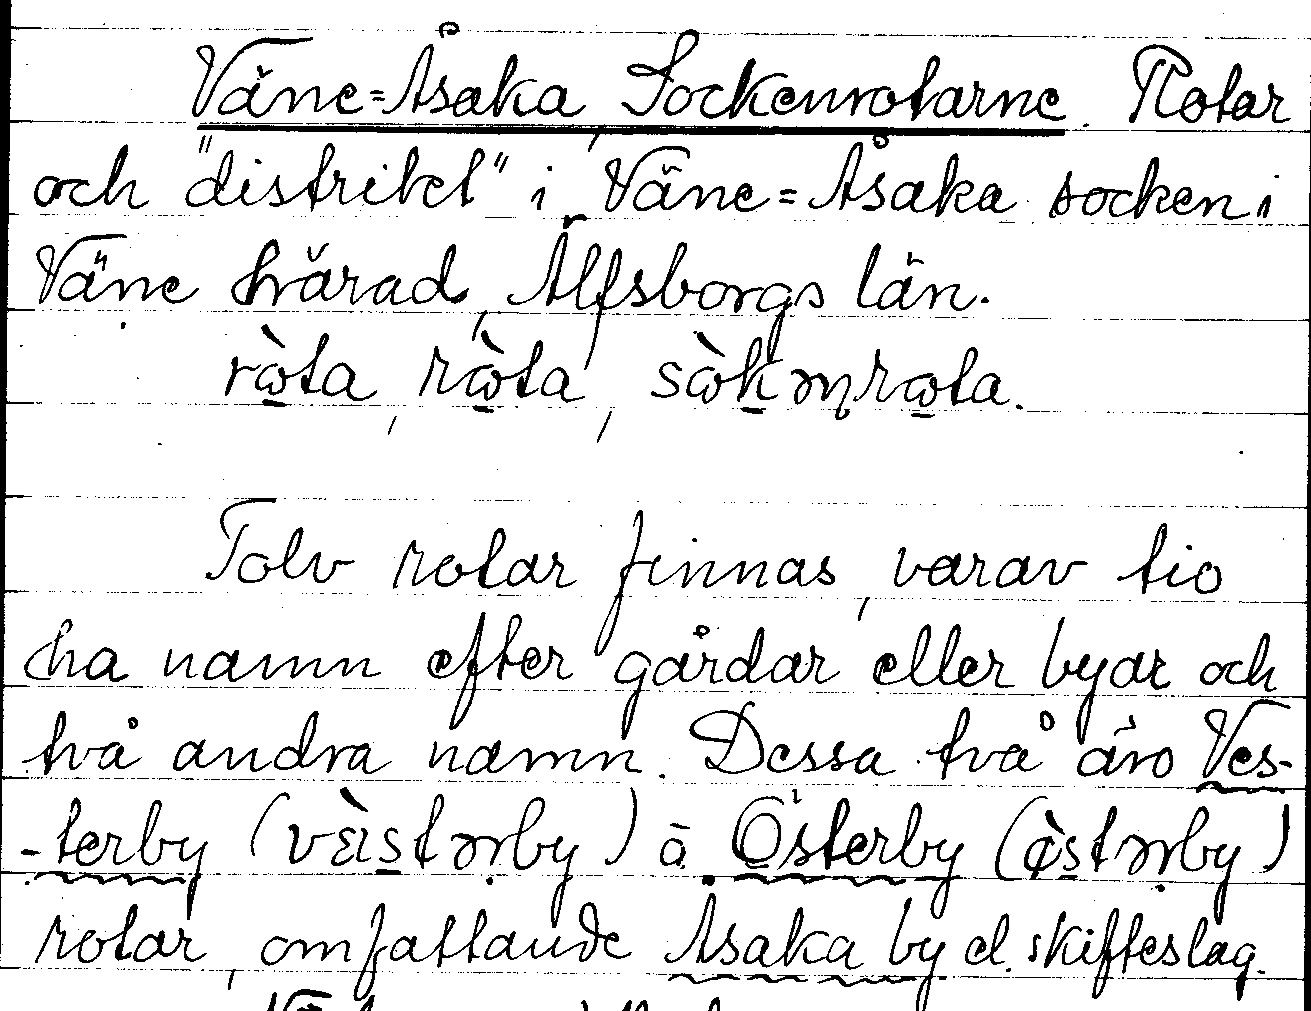 Väne=Åsaka, Sockenrotarne. Rotar
och "distrikt" i Väne=Åsaka socken i
Väne härad, Älfsborgs län.
ròta, ròta,
Tolv rotar finnas, varav tio
ha namn efter gårdar eller byar och
två andra namn. Dessa två äro Ves-
-terby ( ) å Österby ( )
rotar, omfattande Åsaka by el. skifteslag.